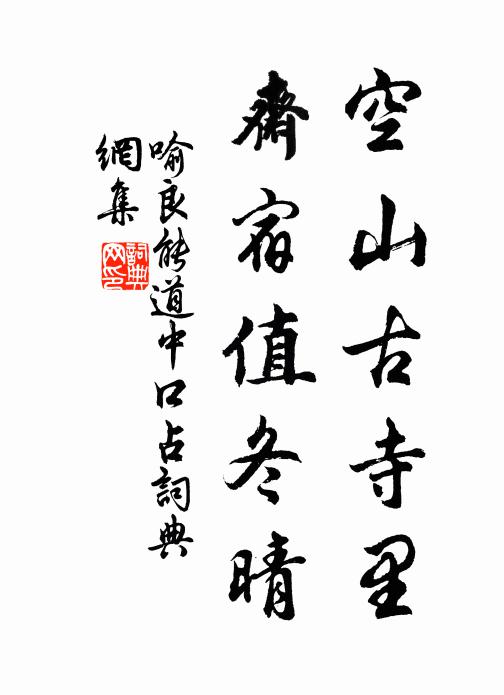 空山古寺里
齋宿值冬晴
喻良能道中口占詞典
網集
詞典
网印